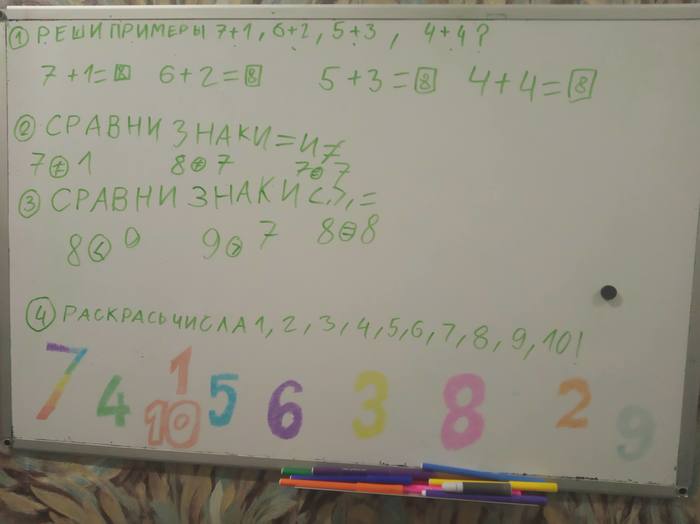 ① РЕШИ ПРИМЕРЫ 7+1, 6+2, 5+3, 4+4?
7+1=8 6+2=8 5+3=8 4+4=8
② СРАВНИ ЗНАКИ = И ≠
7≠1 8≠7 7=7
③ СРАВНИ ЗНАКИ <,>,=
8<9 9>7 8=8
④ РАСКРАСЬ ЧИСЛА 1, 2, 3, 4, 5, 6, 7, 8, 9, 10!
7 4 1 10 5 6 3 8 2 9